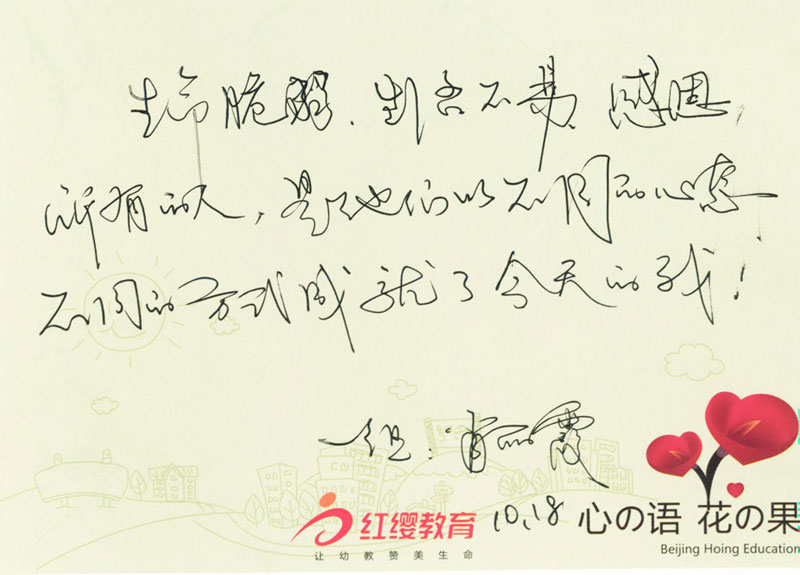 生命脆弱,创吾不易,感恩
所有的人,是他们以不同的心态
不同的方式成就了今天的我!
一组:肖丽霞
10.18
心の语 花の果
红缨教育
让幼教赞美生命
Beijing Hoing Education